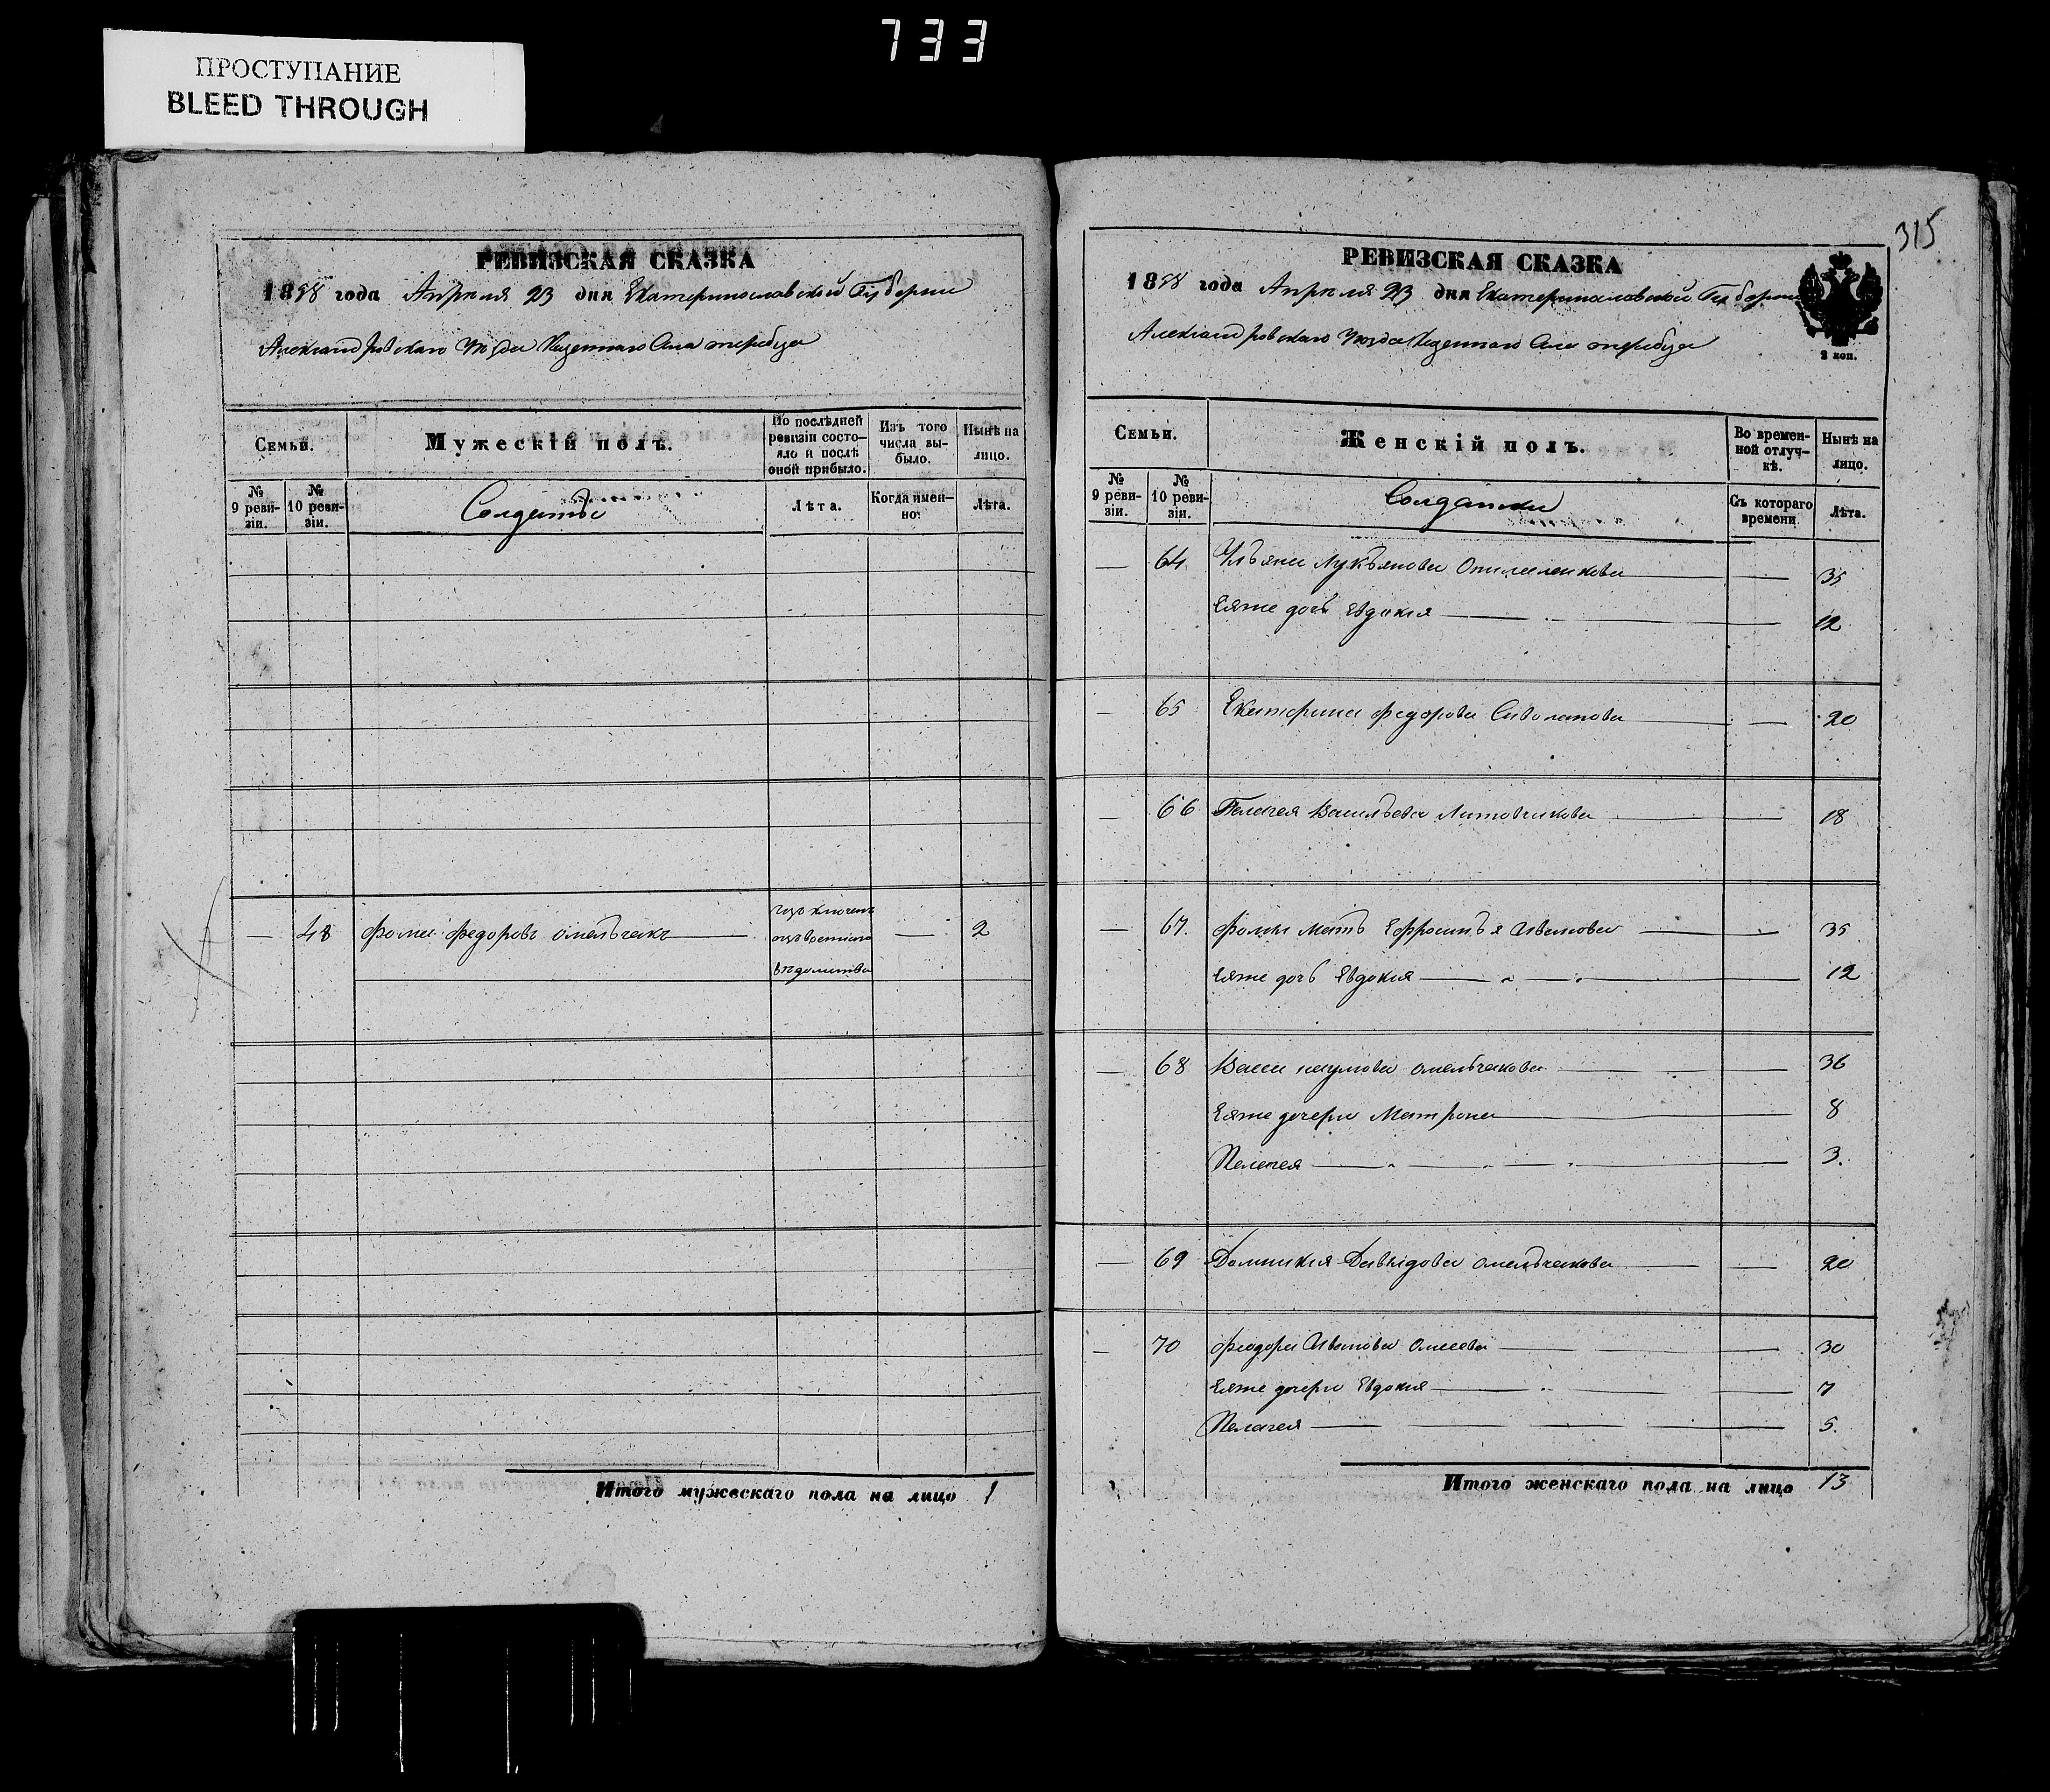 733
ПРОСТУПАНИЕ
BLEED THROUGH
РЕВИЗСКАЯ СКАЗКА
1858 года Апреля 23 дня Екатеринославской Губернии
Александровского Уезда Казенного Села
Семьи.
Мужескій полъ.
По послѣдней ревизіи состояло и послѣ оной прибыло.
Изъ того числа выбыло.
Нынѣ на лицо.
№ 9 ревизіи.
№ 10 ревизіи.
Солдаты
Лѣта.
Когда именно:
Лѣта.
— 48 Фома Федоровъ Омельчакъ — 2
вѣдомства
Итого мужескаго пола на лицо 1
315
РЕВИЗСКАЯ СКАЗКА
1858 года Апреля 23 дня Екатеринославской Губернии
Александровского Уезда Казенного Села
2 коп.
Семьи.
Женскій полъ.
Во временной отлучкѣ.
Нынѣ на лицо.
№ 9 ревизіи.
№ 10 ревизіи.
Солдатки
Съ котораго времени
Лѣта.
— 64 Ульяна Лукьянова — 35
Еяже дочь Евдокия — 12
— 65 Екатерина Федорова — 20
— 66 Пелагея Васильева Литовчикова — 18
— 67. Фомы мать Ефросинья Иванова — 35
Еяже дочь Евдокия — 12
— 68 Наумова Омельчакова — 36
Еяже дочери Матрона — 8
Пелагея — 3.
— 69 Домникия Давыдова Омельчакова — 20
— 70 Феодора Иванова — 30
Еяже дочери Евдокия — 7
Пелагея — 5.
Итого женскаго пола на лицо 13